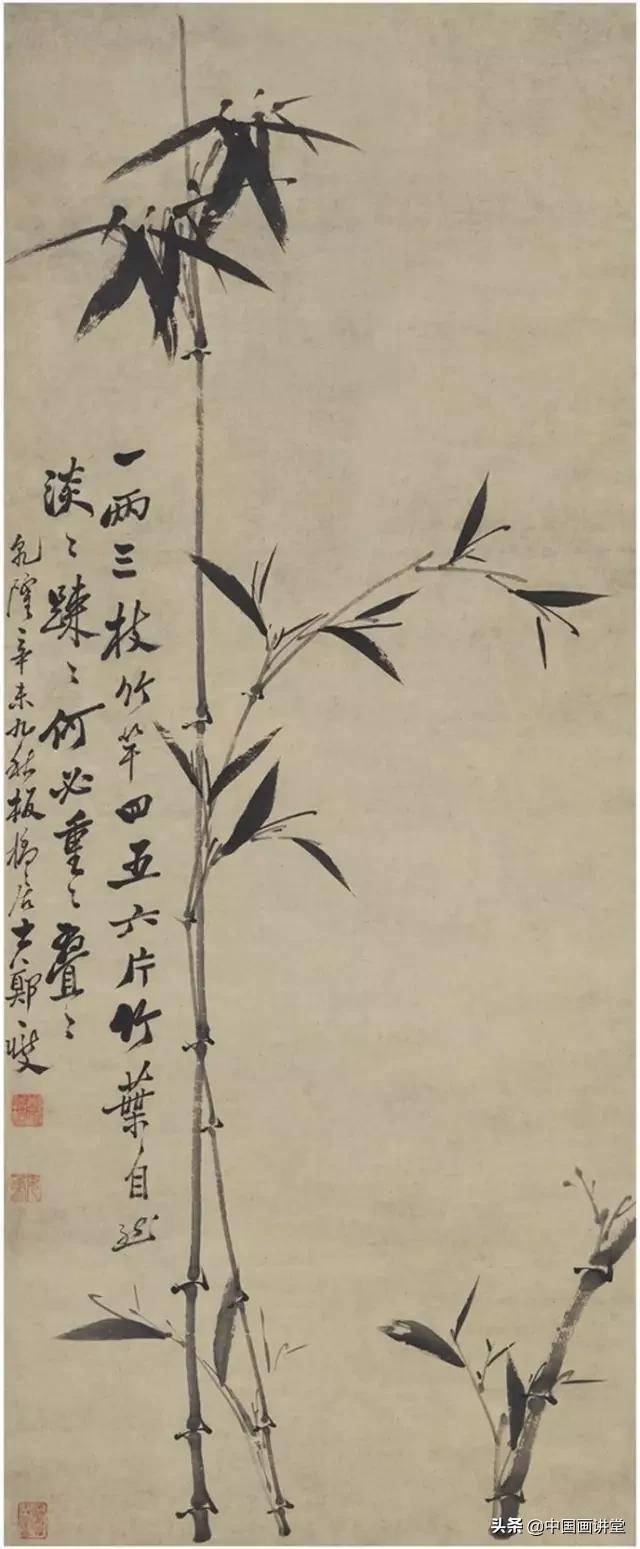 一兩三枝竹竿四五六片竹葉自然
淡〻踈〻何必重〻疊〻
乾隆辛未九秋板橋居士鄭燮
头条 @中国画讲堂